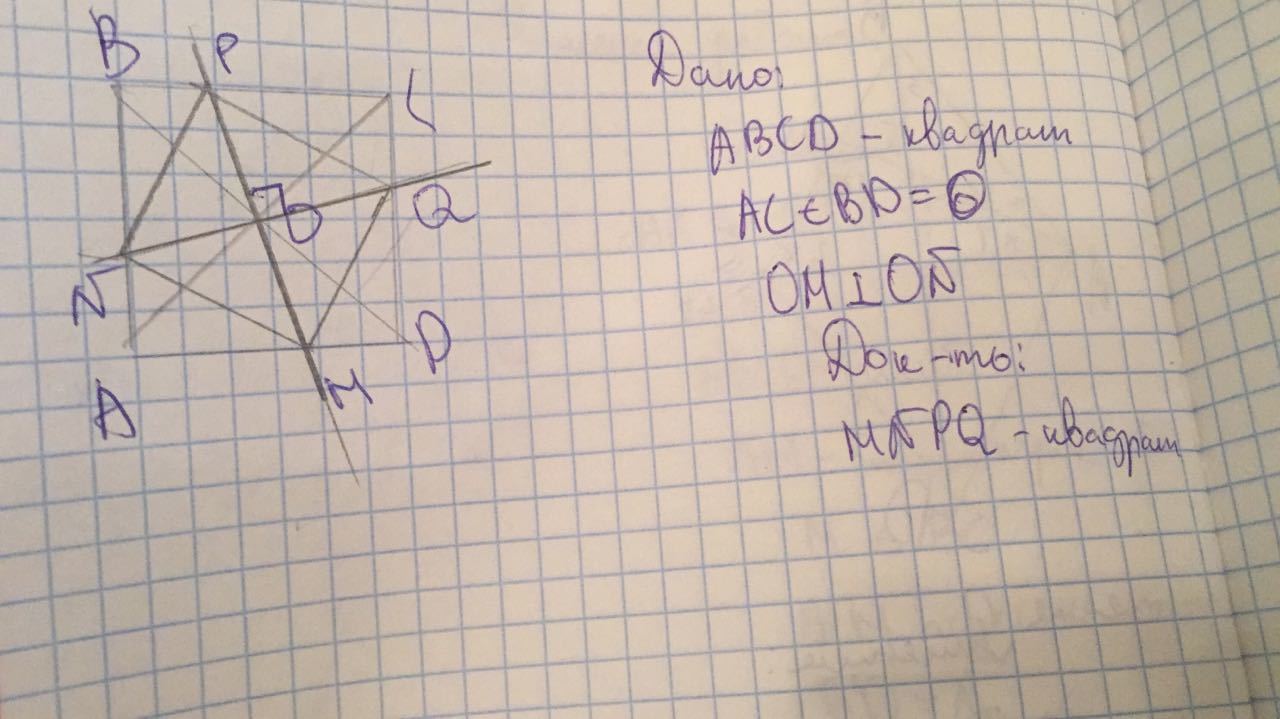 B P C
Q
O
N
M D
A
Дано:
ABCD - квадрат
AC ∈ BD = O
OM ⊥ ON
Док-ть:
MNPQ - квадрат